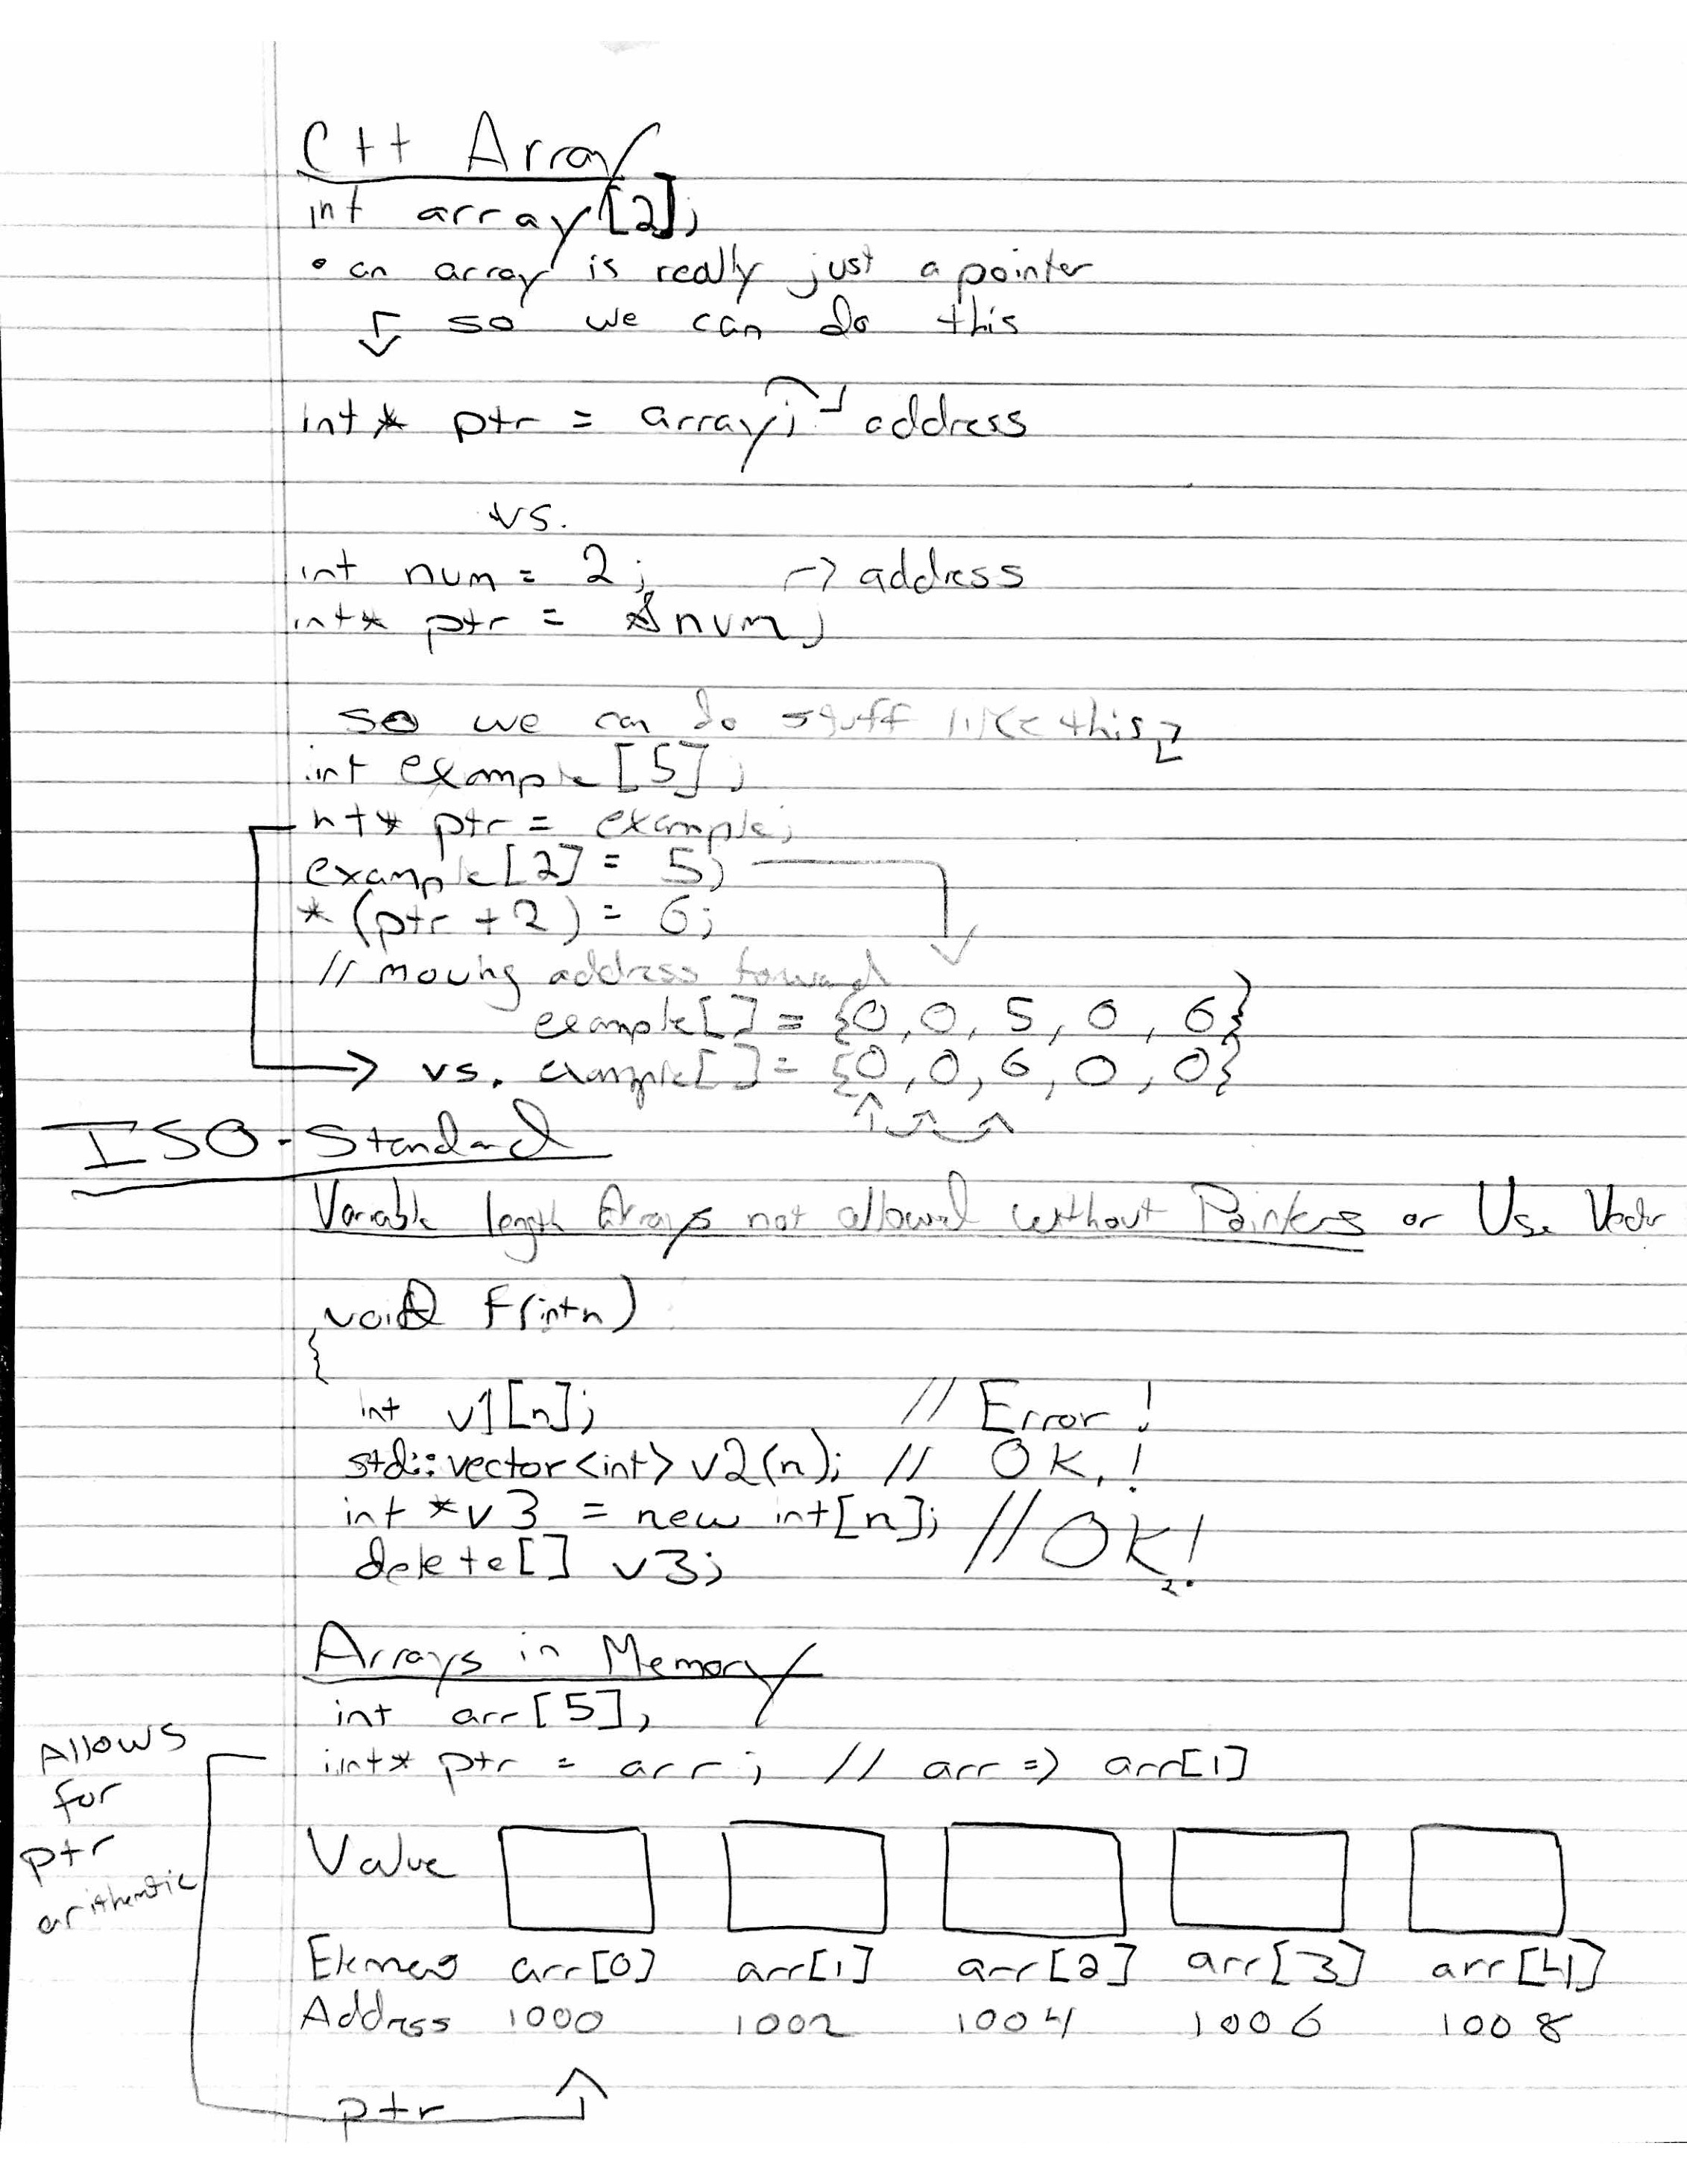 C++ Array
int array[2];
• an array is really just a pointer
so we can do this
int* ptr = array; address
vs.
int num = 2; → address
int* ptr = &num;
so we can do stuff like this
int example[5];
int* ptr = example;
example[2] = 5;
*(ptr + 2) = 6;
// moving address forward
example[] = {0, 0, 5, 0, 6}
vs. example[] = {0, 0, 6, 0, 0}
ISO-Standard
Variable length Arrays not allowed without Pointers or Use Vector
void F(int n)
{
int v1[n]; // Error!
std::vector<int> v2(n); // OK.!
int *v3 = new int[n]; // OK!
delete[] v3;
Arrays in Memory
int arr[5];
int* ptr = arr; // arr => arr[1]
Allows
for
ptr
arithemtic
Value
Element arr[0] arr[1] arr[2] arr[3] arr[4]
Address 1000 1002 1004 1006 1008
ptr